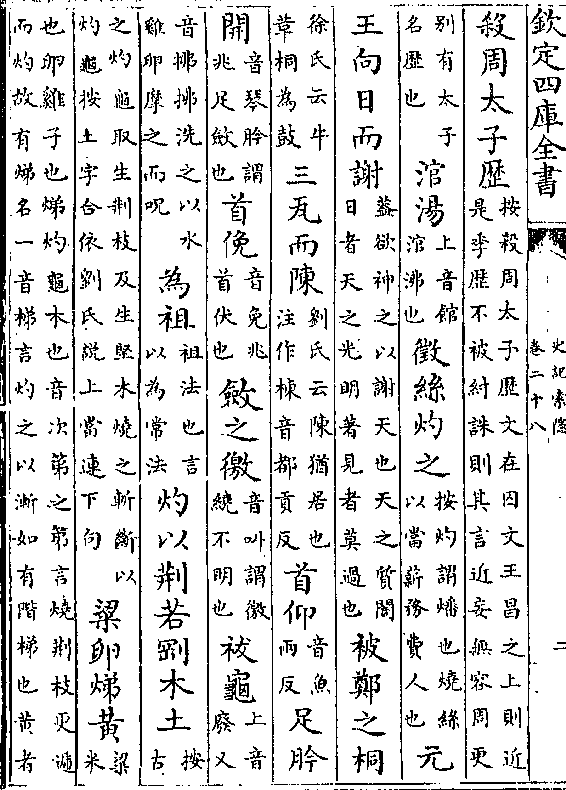 欽定四庫全書
史記索隱
卷二十八
二
殺周太子歷
按殺周太子歷文在囚文王昌之上則近
是季歷不被紂誅則其言近妄無容周更
別有太子
名歷也
涫湯
上音館
涫沸也
徵絲灼之
按灼謂燔也燒絲
以當薪務費人也
元
王向日而謝
蓋欲神之以謝天也天之質闇
日者天之光明著見者莫過也
被鄭之桐
徐氏云牛
革桐為鼓
三瓦而陳
劉氏云陳猶居也
注作棟音都貢反
首仰
音魚
兩反
足肣
開
音琴肣謂
兆足斂也
首俛
音免兆
首伏也
斂之徼
音叫謂徼
繞不明也
祓龜
上音
廢又
音拂拂洗之以水
雞卵摩之而呪
為祖
祖法也言
以為常法
灼以荆若剛木土
按
古
之灼龜取生荆枝及生堅木燒之斬斷以
灼龜按土字合依劉氏說上當連下句
粱卵焍黃
粱
米
也卵雞子也焍灼龜木也音次第之第言燒荆枝更遞
而灼故有焍名一音梯言灼之以漸如有階梯也黃者